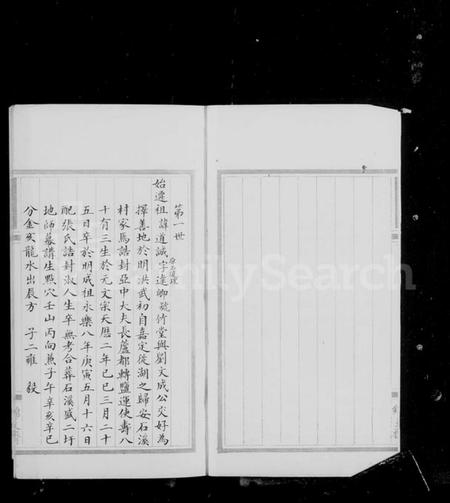 第一世
始遷祖諱道誠字達卿號竹堂與劉文成公交好為
擇善地於明洪武初自嘉定從湖之歸安石溪
村家焉誥封亞中大夫長蘆都轉鹽運使壽八
十有三生於元文宗天曆二年己巳三月二十
五日卒於明成祖永樂八年庚寅五月十六日
配張氏誥封淑人生卒無考合葬石溪盛二圩
地師墓講生點穴壬山丙向兼子午辛亥辛巳
分金亥龍水出辰方 子二雍 毅
FamilySearch